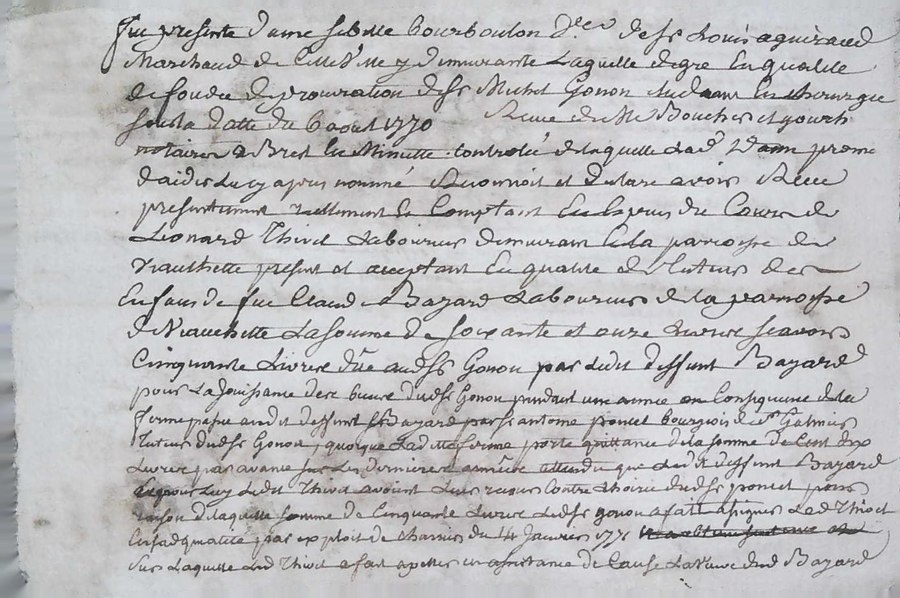 fut presente dame sibille Bourboulon de sr Louis aguiraud
Marchand de cette ville y demeurante Laquelle de gre En qualité
de fondée de procuration de sr Michel Gonon Etudiant En chirurgie
sous la datte du 6 aout 1770 Recue de Me Boucher et
notaires a Brest En Minutte controlée de laquelle lad dame promet
d'aider Luy apres nommé Reconnoit et declare avoir Receu
presentement reellement En Comptant En Espece du Cours de
Leonard Thivet Laboureur demeurant En la parroisse de
Viauchette present et acceptant En qualité de tuteur des
Enfans de feu Claude Bayard Laboureur de la parroisse
de Viauchette La somme de soixante et onze Livres scavoir
Cinquante Livres due audsr Gonon par Ledit deffunt Bayard
pour La Jouissance des biens dudsr Gonon pendant une année en Consequence de la
ferme passée audit deffunt Bayard par sr antoine poncet bourgeois de st Galmier
tuteur dudsr Gonon, quoique Ladite ferme porte quittance de la somme de Cent dix
Livres par avance sur Les dernieres années attendu que Ledit deffunt Bayard
Ledit Thivet avoient Leur recours contre hoirie dudsr poncet pour
raison de laquelle somme de Cinquante Livres Ledsr gonon a fait assigner Led Thivet
En sad qualité par exploit de du 14 Janvier 1771
sur Laquelle Led Thivet a fait apeller en assistance de Cause La veuve dud Bayard